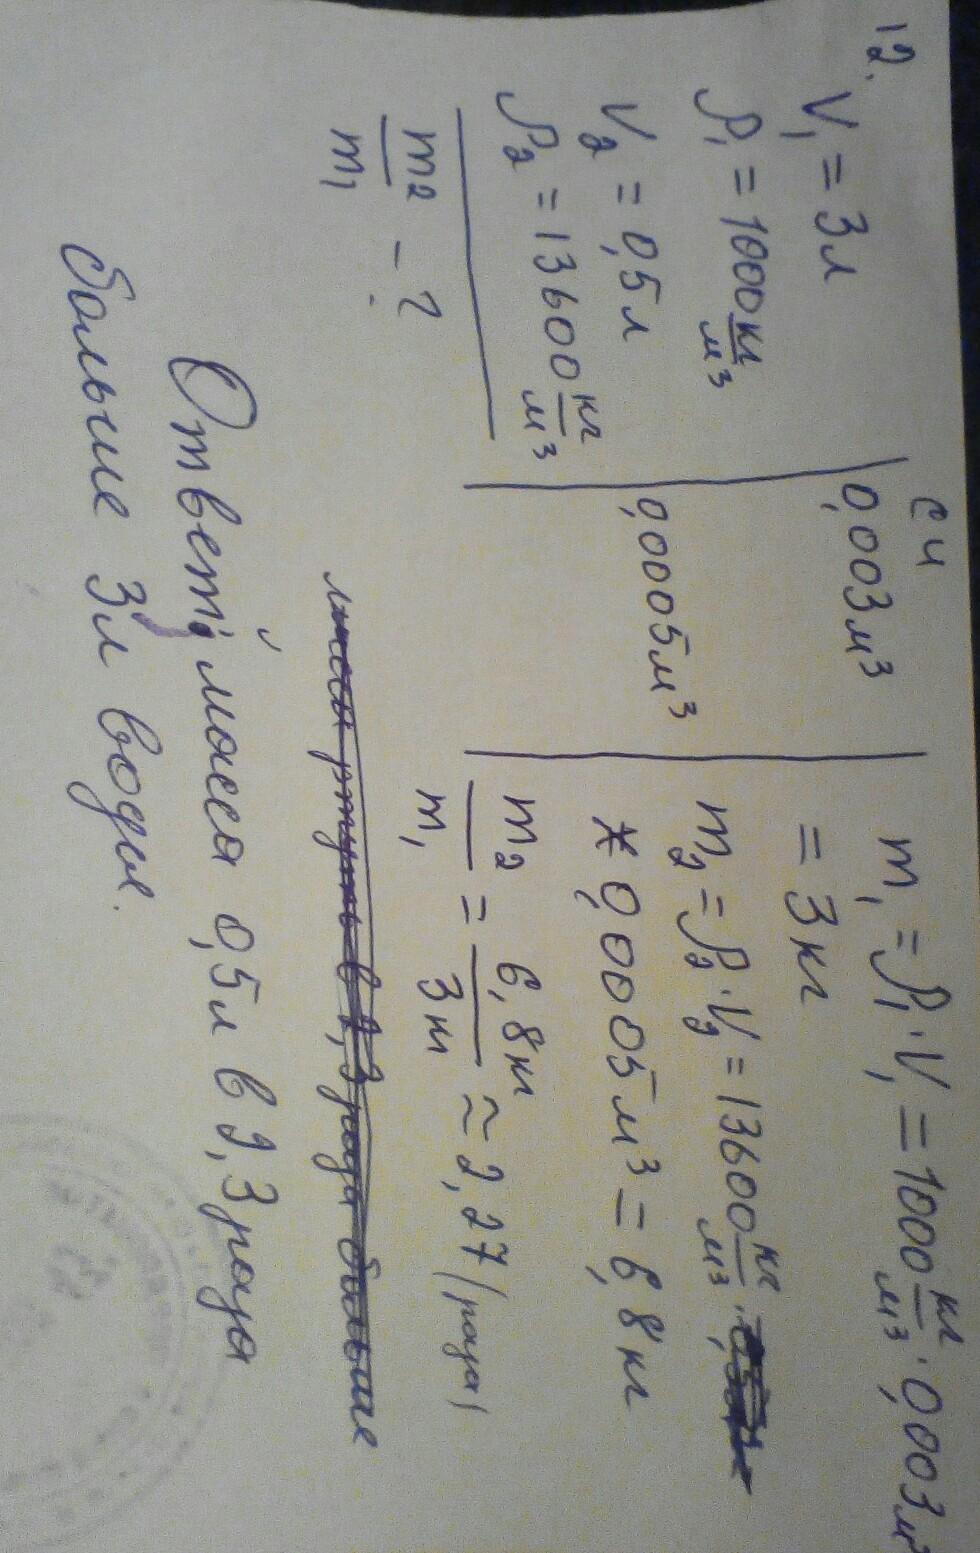 12.
V₁ = 3л
ρ₁ = 1000 кг/м³
V₂ = 0,5л
ρ₂ = 13600 кг/м³
m₂/m₁ - ?
СИ
0,003м³
0,0005м³
m₁ = ρ₁·V₁ = 1000 кг/м³ · 0,003м³
= 3кг
m₂ = ρ₂·V₂ = 13600 кг/м³ ·
* 0,0005м³ = 6,8кг
m₂/m₁ = 6,8кг/3кг ≈ 2,27 (раза)
Ответ: масса 0,5л в 2,3 раза
больше 3л воды.